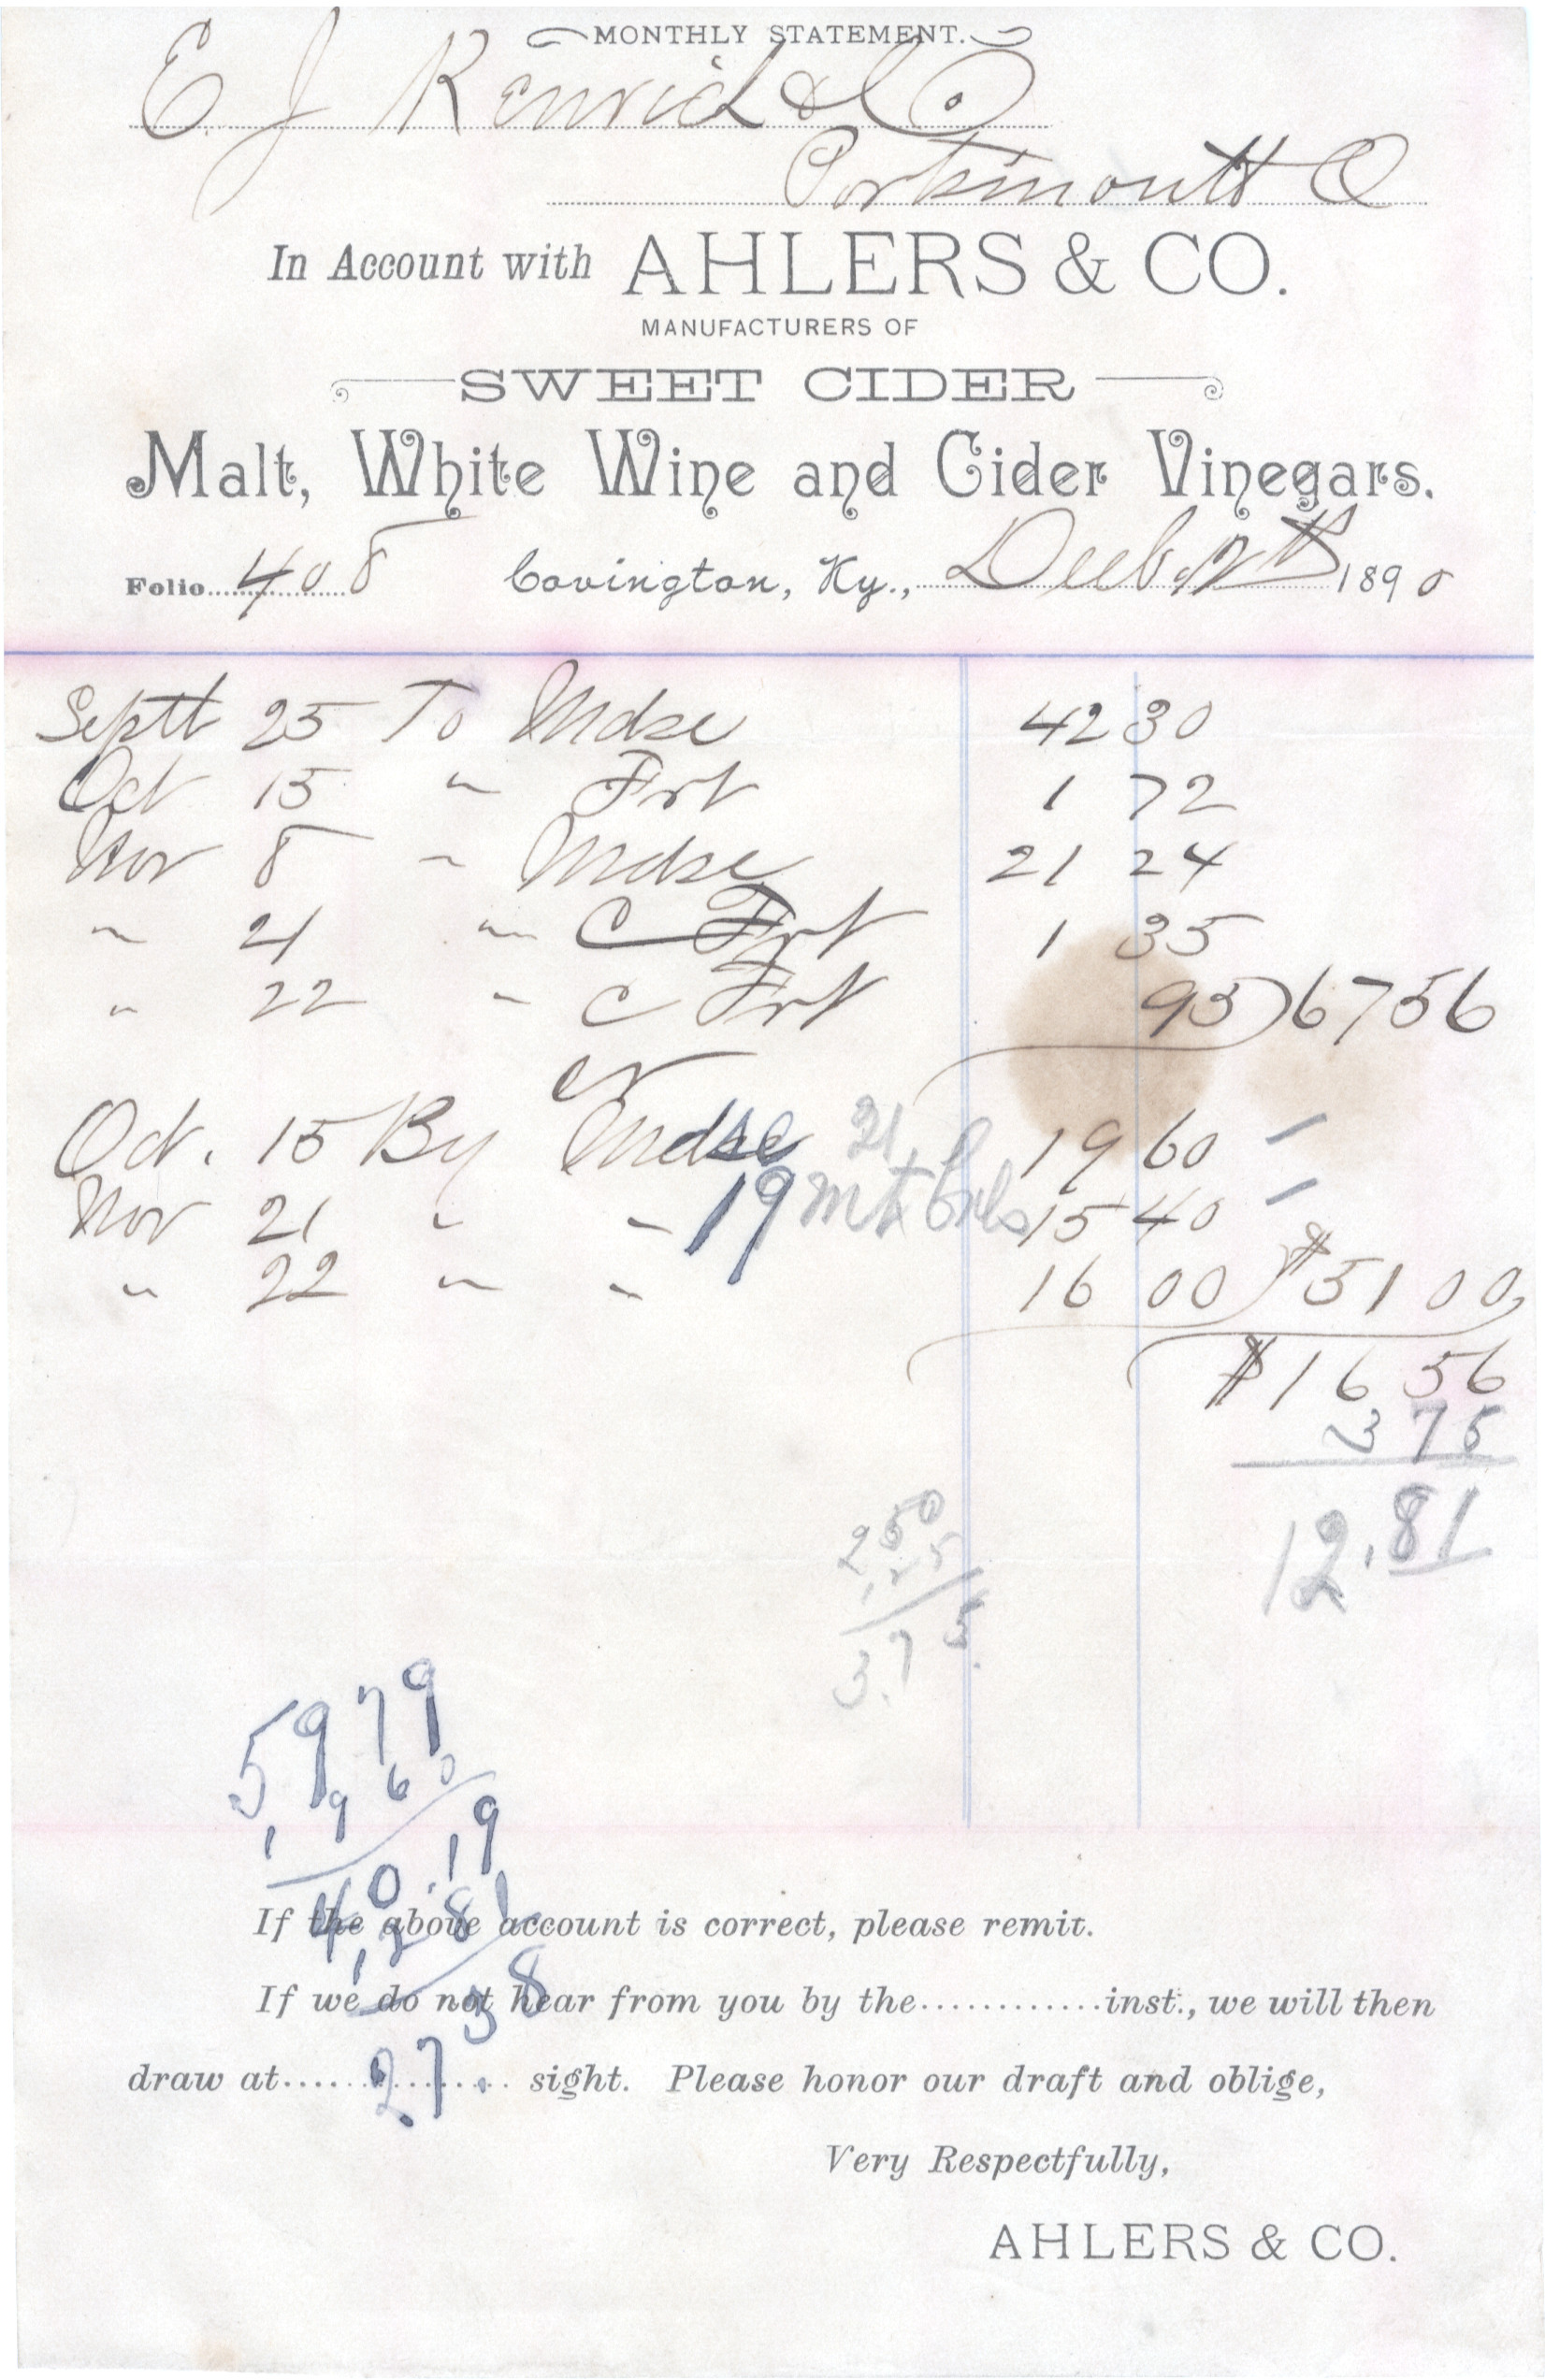 MONTHLY STATEMENT.
E. J. Kenrick & Co.
Portsmoutt O
In Account with AHLERS & CO.
MANUFACTURERS OF
SWEET CIDER
Malt, White Wine and Cider Vinegars.
Folio 408 Covington, Ky., 1890
Septt 25 To Mdse 42 30
Oct 15 " Frt 1 72
Nov 8 " Mdse 21 24
" 21 " C Frt 1 35
" 22 " C Frt 95 67 56
Cr
Oct. 15 By Mdse 21 19 60
Nov 21 " " 19 mt brls 15 40
" 22 " " 16 00 $51 00
$16 56
3 75
12.81
2 50
.25
3.75
59 79
19 60
40.19
12 81
27.38
If the above account is correct, please remit.
If we do not hear from you by the............inst., we will then
draw at............ sight. Please honor our draft and oblige,
Very Respectfully,
AHLERS & CO.